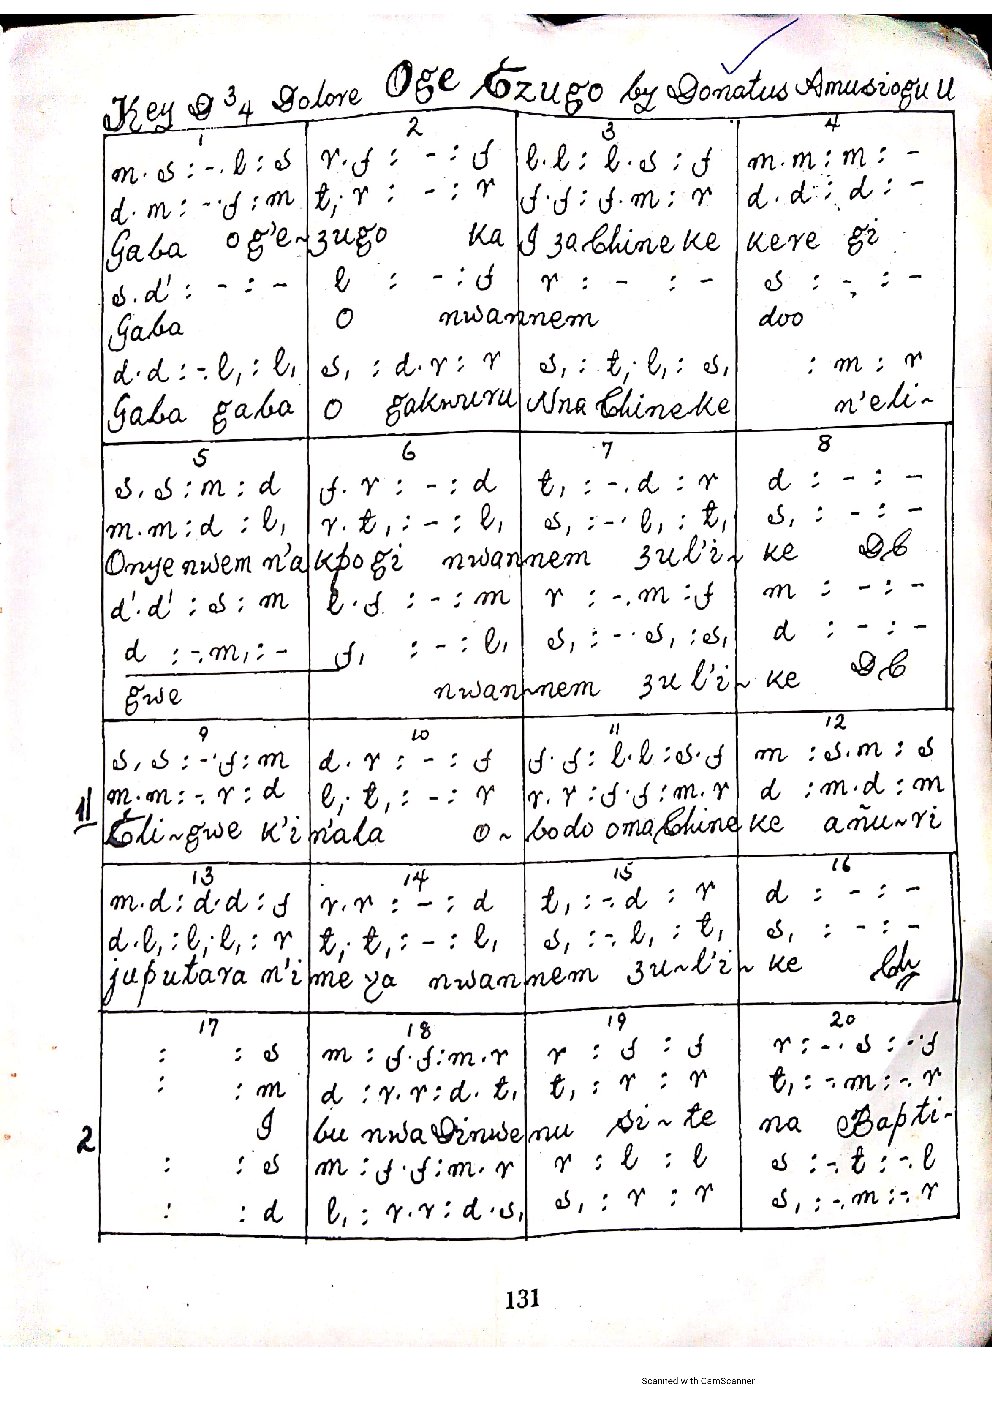 Key D 3/4 Dolore Oge Ezugo by Donatus Amusiogu U
1 2 3 4
m.s : -.l : s | r.f : - : f | l.l : l.s : f | m.m : m : -
d.m : -.f : m | t,.r : - : r | f.f : f.m : r | d.d : d : -
Gaba og'e~zugo ka I za Chineke kere gi
s.d' : - : - | l : - : f | r : - : - | s : - : -
Gaba O nwannem doo
d.d : -.l, : l, | s, : d.r : r | s, : t,.l, : s, | : m : r
Gaba gaba O gakwuru Nna Chineke n'eli~
5 6 7 8
s.s : m : d | f.r : - : d | t, : -.d : r | d : - : -
m.m : d : l, | r.t, : - : l, | s, : -.l, : t, | s, : - : -
Onye nwem n'a kpo gi nwannem zul'i~ke DC
d'.d' : s : m | l.f : - : m | r : -.m : f | m : - : -
d : -.m, : - | f, : - : l, | s, : -.s, : s, | d : - : -
gwe nwannem zul'i~ke DC
9 10 11 12
s.s : -.f : m | d.r : - : f | f.f : l.l : s.f | m : s.m : s
11 m.m : -.r : d | l,.t, : - : r | r.r : f.f : m.r | d : m.d : m
Eli~gwe k'i n'ala o~bodo oma Chineke añu~ri
13 14 15 16
m.d : d.d : f | r.r : - : d | t, : -.d : r | d : - : -
d.l, : l,.l, : r | t,.t, : - : l, | s, : -.l, : t, | s, : - : -
juputara n'ime ya nwannem zu~l'i~ke
17 18 19 20
: : s | m : f.f : m.r | r : f : f | r : -.s : -.f
: : m | d : r.r : d.t, | t, : r : r | t, : -.m : -.r
2 I bu nwa Dinwenu si~te na Bapti~
: : s | m : f.f : m.r | r : l : l | s : -.t : -.l
: : d | l, : r.r : d.s, | s, : r : r | s, : -.m : -.r
131
Scanned with CamScanner